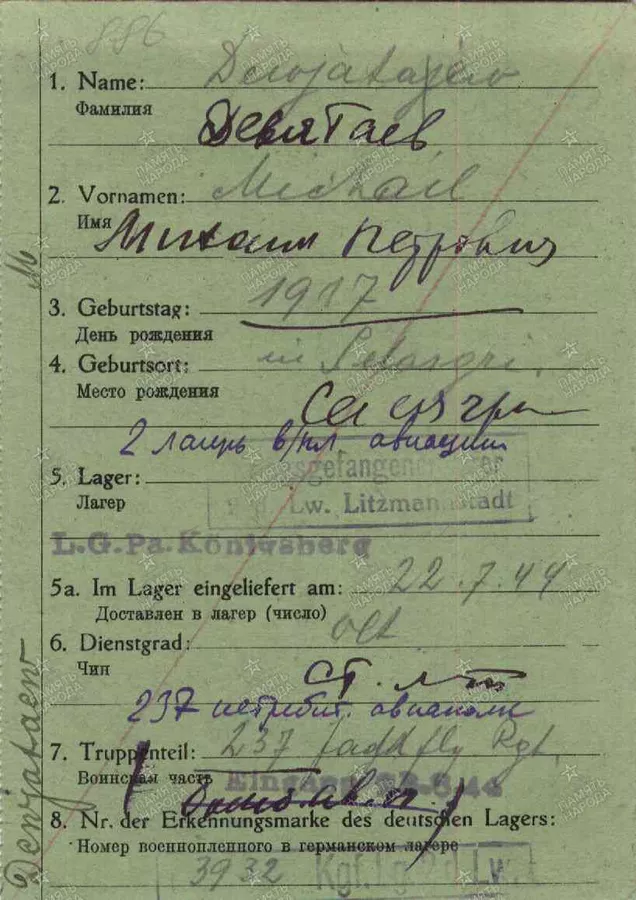 886
1. Name: Dewjatajew
Фамилия
Девятаев
2. Vornamen: Michail
Имя Михаил Петрович
3. Geburtstag: 1917
День рождения
4. Geburtsort: in
Место рождения
2 лагерь в/пл. авиации
5. Lager: Kriegsgefangenenlager
Лагер Lw. Litzmannstadt
L.G.Pa. Königsberg
5a. Im Lager eingeliefert am: 22.7.44
Доставлен в лагер (число)
6. Dienstgrad: Olt
Чин
ст. л-т
237 истребит. авиаполк
7. Truppenteil: 237 Jagdflg Rgt.
Воинская часть Eingang
8. Nr. der Erkennungsmarke des deutschen Lagers:
Номер военнопленного в германском лагере
3932 Kgf. Lg. Lw.
Dewjataew M